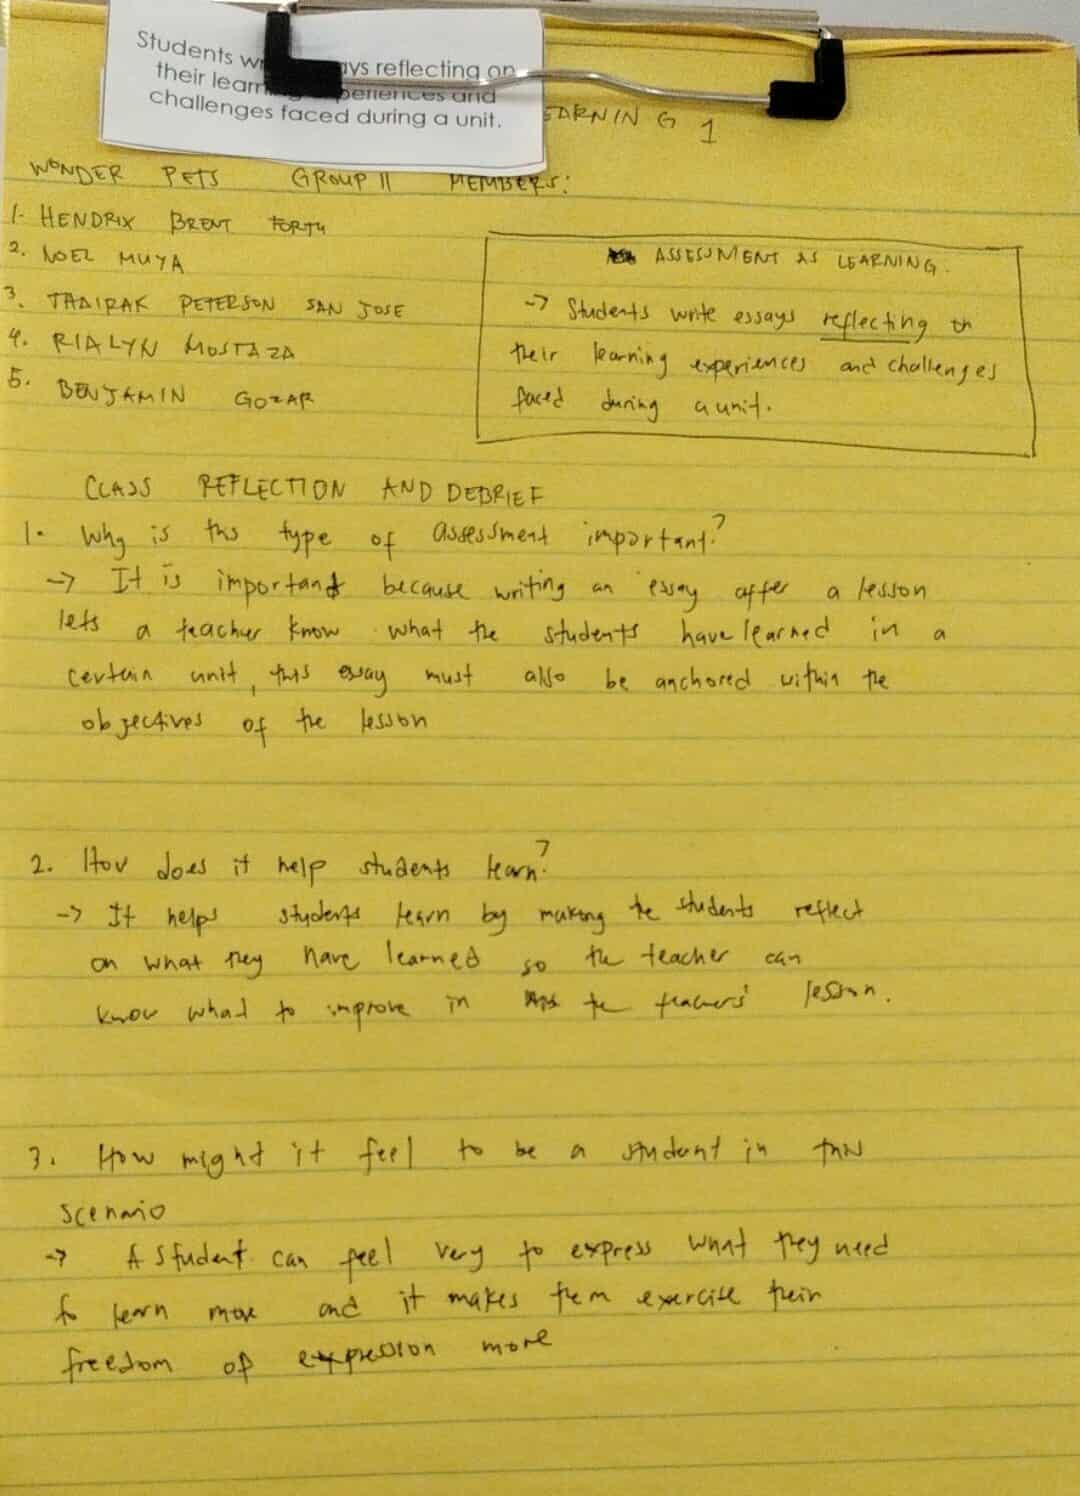 Students wr ays reflecting on
their learning experiences and
challenges faced during a unit.
EARNING 1
WONDER PETS GROUP 11 MEMBERS:
1- HENDRIX BRENT
2. NOEL MUYA
3. PETERSON SAN JOSE
4. RIALYN MOSTAZA
5. BENJAMIN GOZAR
ASSESSMENT AS LEARNING.
-> Students write essays reflecting on
their learning experiences and challenges
faced during a unit.
CLASS REFLECTION AND DEBRIEF
1. Why is this type of assessment important?
-> It is important because writing an essay after a lesson
lets a teacher know what the students have learned in a
certain unit, this essay must also be anchored within the
objectives of the lesson
2. How does it help students learn?
-> It helps students learn by making the students reflect
on what they have learned so the teacher can
know what to improve in the teachers' lesson.
3. How might it feel to be a student in this
scenario
-> A student can feel very to express what they need
to learn more and it makes them exercise their
freedom of expression more